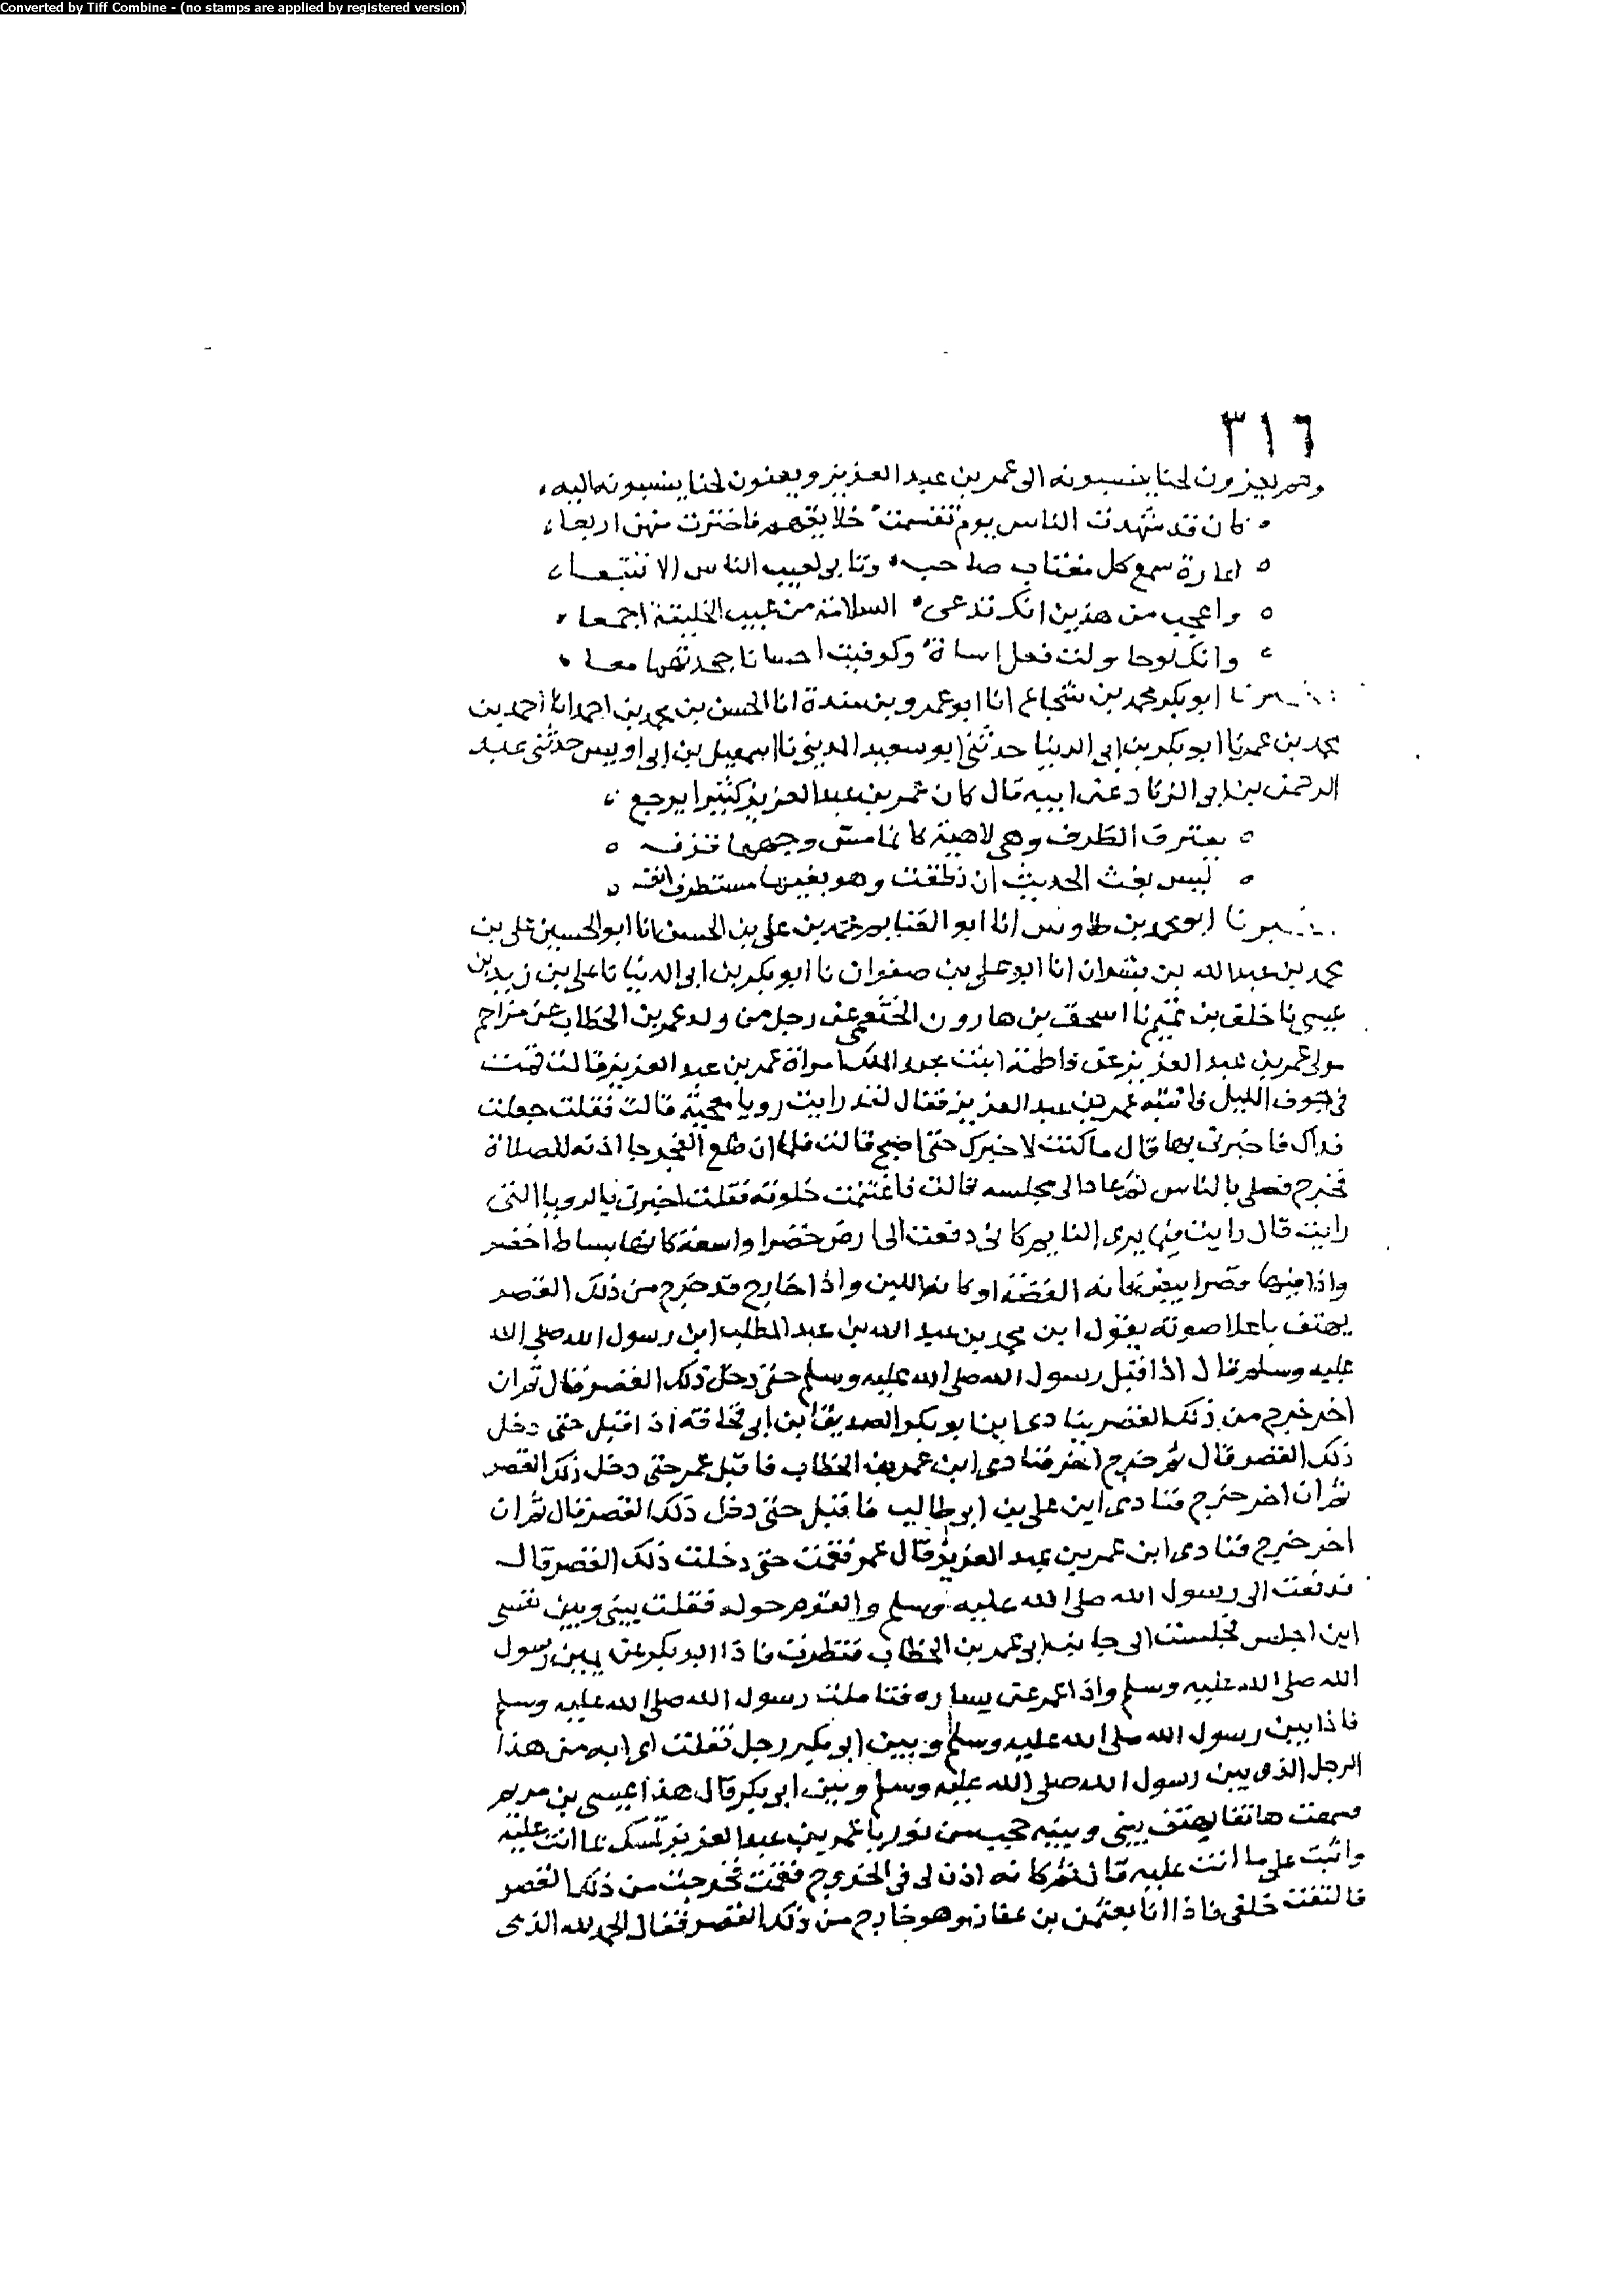 Converted by Tiff Combine - (no stamps are applied by registered version)
٣١٦
وهم يعزون لحنا ينسبونه الى عمر بن عبد العزيز ويغنون لحنا ينسبونه اليه
كان قد شهدت الناس يوم تقسمت خلايقهم فاخترت منهن اربعا
اعارة سمع كل مغتاب صاحب وتابى لعيب الناس الا تتبعا
واعجب من هذين انك تدعى السلامة من عيب الخليقة اجمعا
وانك لو حاولت فعل اساة وكوفيت احسانا جحدتهما معا
ابو بكر محمد بن شجاع انا ابو عمرو بن مندة انا الحسن بن محمد بن احمد انا احمد بن
محمد بن عمر نا ابو بكر بن ابى الدنيا حدثنى ابو سعيد المدينى نا اسمعيل بن ابى اويس حدثنى عبد
الرحمن بن ابى الزناد عن ابيه قال كان عمر بن عبد العزيز كثيرا يرجع
تعترق الطرف وهى لاهية كانما وجهها نزف
الحديث ان نطقت وهو بفيها مستطرف
ابو محمد بن طاوس انا ابو الغنايم محمد بن على بن الحسن انا ابو الحسين على بن
محمد بن عبد الله بن بشران انا ابو على بن صفوان نا ابو بكر بن ابى الدنيا نا على بن زيد بن
عيسى نا خلف بن تميم نا اسحق بن هارون الخثعمى عن رجل من ولد عمر بن الخطاب عن مزاحم
مولى عمر بن عبد العزيز عن فاطمة ابنت عبد الملك امراة عمر بن عبد العزيز قالت قمت
فى جوف الليل فانتبه عمر بن عبد العزيز فقال لقد رايت رويا معجبة قالت فقلت جعلت
فداك فاخبرنى بها قال ما كنت لاخبرك حتى اصبح قالت فلما ان طلع الفجر جا اذنه للصلاة
فخرج فصلى بالناس ثم عاد الى مجلسه قالت فاغتنمت خلوته فقلت اخبرنى بالرويا التى
رايت قال رايت فيما يرى النايم كانى دفعت الى ارض خضرا واسعة كانها بساط اخضر
واذا فيها قصر ابيض كانه الفضة او كانه اللبن واذا خارج قد خرج من ذلك القصر
يهتف باعلا صوته يقول اين محمد بن عبد الله بن عبد المطلب اين رسول الله صلى الله
عليه وسلم قال اذ اقبل رسول الله صلى الله عليه وسلم حتى دخل ذلك القصر قال ثم ان
اخر خرج من ذلك القصر ينادى اين ابو بكر الصديق اين ابن ابى قحافة اذ اقبل حتى دخل
ذلك القصر قال ثم خرج اخر فنادى اين عمر بن الخطاب فاقبل عمر حتى دخل ذلك القصر
ثم ان اخر خرج فنادى اين على بن ابى طالب فاقبل حتى دخل ذلك القصر قال ثم ان
اخر خرج فنادى اين عمر بن عبد العزيز قال عمر فقمت حتى دخلت ذلك القصر قال
فدفعت الى رسول الله صلى الله عليه وسلم والقوم حوله فقلت بينى وبين نفسى
اين اجلس فجلست الى جانب ابى عمر بن الخطاب فنظرت فاذا ابو بكر عن يمين رسول
الله صلى الله عليه وسلم واذا عمر عن يساره فتاملت رسول الله صلى الله عليه وسلم
فاذا بين رسول الله صلى الله عليه وسلم وبين ابى بكر رجل فقلت اى ابه من هذا
الرجل الذى بين رسول الله صلى الله عليه وسلم وبين ابى بكر قال هذا عيسى بن مريم
فسمعت هاتفا يهتف بينى وبينه حجب من نور يا عمر بن عبد العزيز تمسك بما انت عليه
واثبت على ما انت عليه قال ثم كانه اذن لى فى الخروج فقمت فخرجت من ذلك القصر
فالتفت خلفى فاذا انا بعثمن بن عفان وهو خارج من ذلك القصر فقال الحمد لله الذى